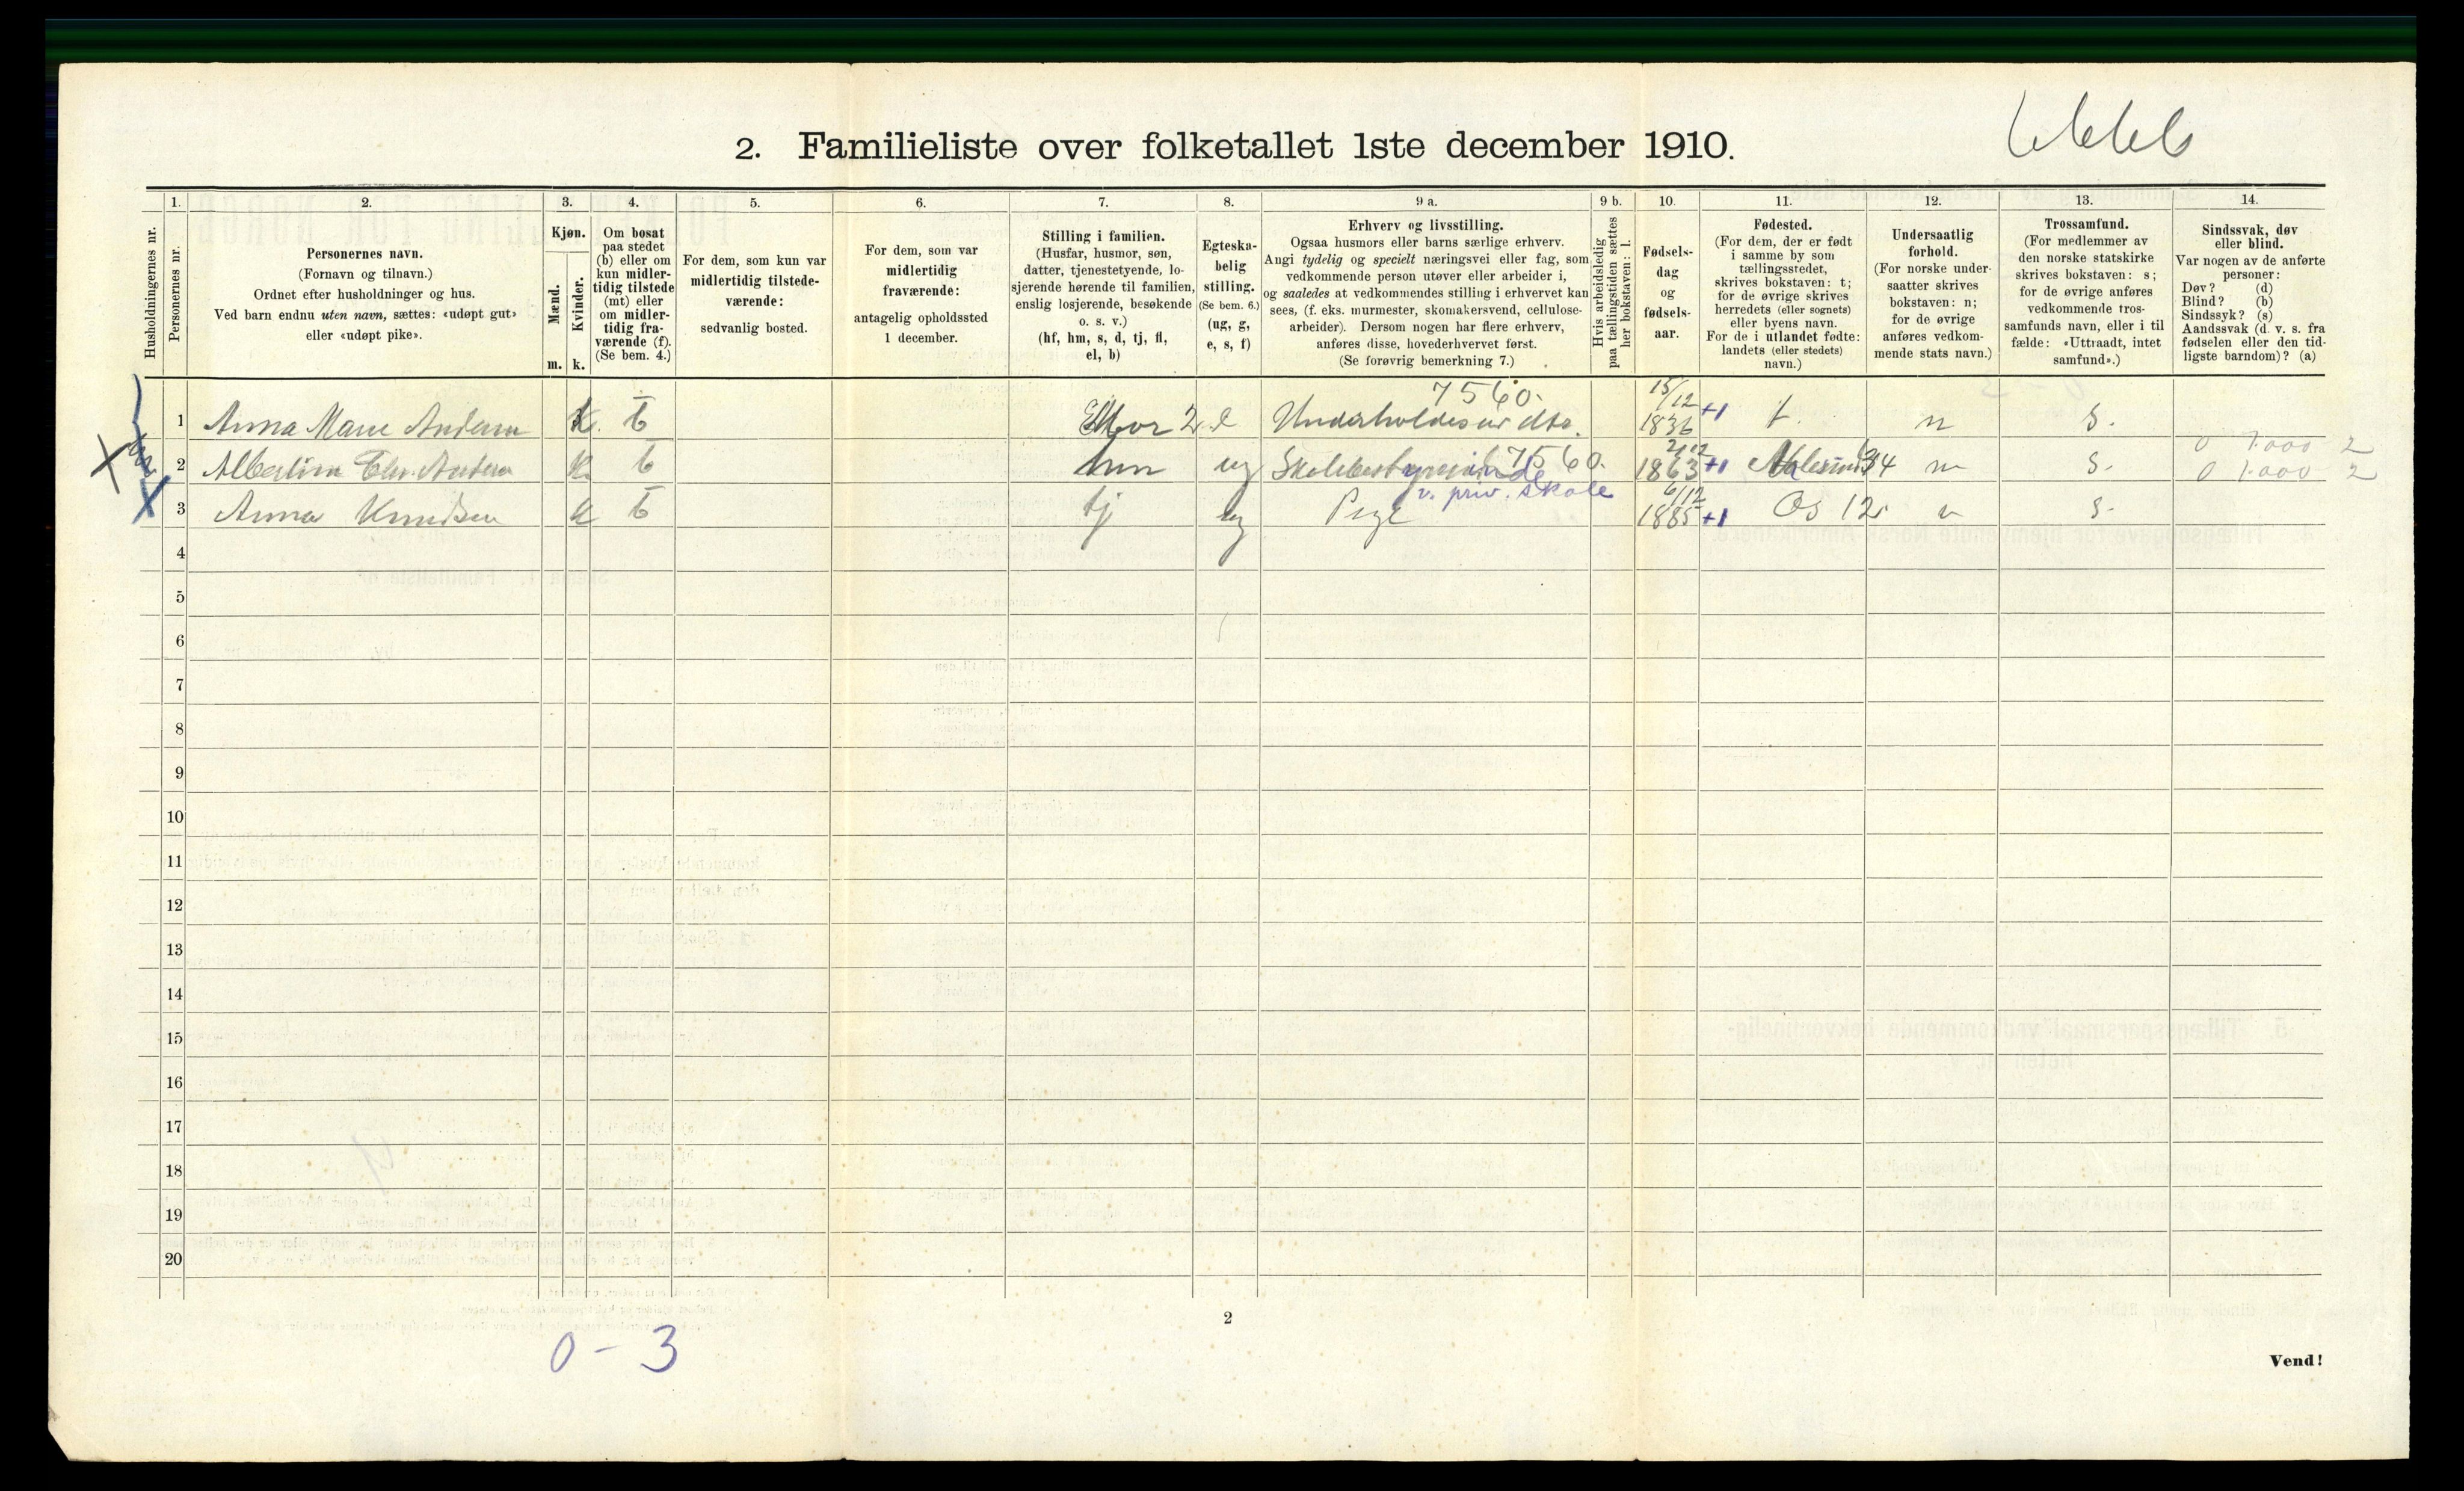 2. Familieliste over folketallet 1ste december 1910.
Husholdningernes nr.
1.
Personernes nr.
2.
Personernes navn.
(Fornavn og tilnavn.)
Ordnet efter husholdninger og hus.
Ved barn endnu uten navn, sættes: «udøpt gut»
eller «udøpt pike».
3.
Kjøn.
Mænd.
Kvinder.
m. k.
4.
Om bosat
paa stedet
(b) eller om
kun midler-
tidig tilstede
(mt) eller
om midler-
tidig fra-
værende (f).
(Se bem. 4.)
5.
For dem, som kun var
midlertidig tilstede-
værende:
sedvanlig bosted.
6.
For dem, som var
midlertidig
fraværende:
antagelig opholdssted
1 december.
7.
Stilling i familien.
(Husfar, husmor, søn,
datter, tjenestetyende, lo-
sjerende hørende til familien,
enslig losjerende, besøkende
o. s. v.)
(hf, hm, s, d, tj, fl,
el, b)
8.
Egteska-
belig
stilling.
(Se bem. 6.)
(ug, g,
e, s, f)
9 a.
Erhverv og livsstilling.
Ogsaa husmors eller barns særlige erhverv.
Angi tydelig og specielt næringsvei eller fag, som
vedkommende person utøver eller arbeider i,
og saaledes at vedkommendes stilling i erhvervet kan
sees, (f. eks. murmester, skomakersvend, cellulose-
arbeider). Dersom nogen har flere erhverv,
anføres disse, hovederhvervet først.
(Se forøvrig bemerkning 7.)
9 b.
Hvis arbeidsledig
paa tællingstiden sættes
her bokstaven: l.
10.
Fødsels-
dag
og
fødsels-
aar.
11.
Fødested.
(For dem, der er født
i samme by som
tællingsstedet,
skrives bokstaven: t;
for de øvrige skrives
herredets (eller sognets)
eller byens navn.
For de i utlandet fødte:
landets (eller stedets)
navn.)
12.
Undersaatlig
forhold.
(For norske under-
saatter skrives
bokstaven: n;
for de øvrige
anføres vedkom-
mende stats navn.)
13.
Trossamfund.
(For medlemmer av
den norske statskirke
skrives bokstaven: s;
for de øvrige anføres
vedkommende tros-
samfunds navn, eller i til
fælde: «Uttraadt, intet
samfund».)
14.
Sindssvak, døv
eller blind.
Var nogen av de anførte
personer:
Døv? (d)
Blind? (b)
Sindssyk? (s)
Aandssvak (d. v. s. fra
fødselen eller den tid-
ligste barndom)? (a)
7560. 15/12
1 Anna Marie Andersen k. b 2 e Underholdes av dtr. 1836 +1 t. n s.
0 7.000 2
2 Albertine Chr. Andersen k b hm ug Skolebestyrerinde 7560. 1863 +1 Aalesund n s. 0 1.000 2
v. priv. skole 6/12
3 Anna Knudsen k b tj ug Pige 1885 +1 Os 12. n s.
4
5
6
7
8
9
10
11
12
13
14
15
16
17
18
19
20
2
0 - 3
Vend!